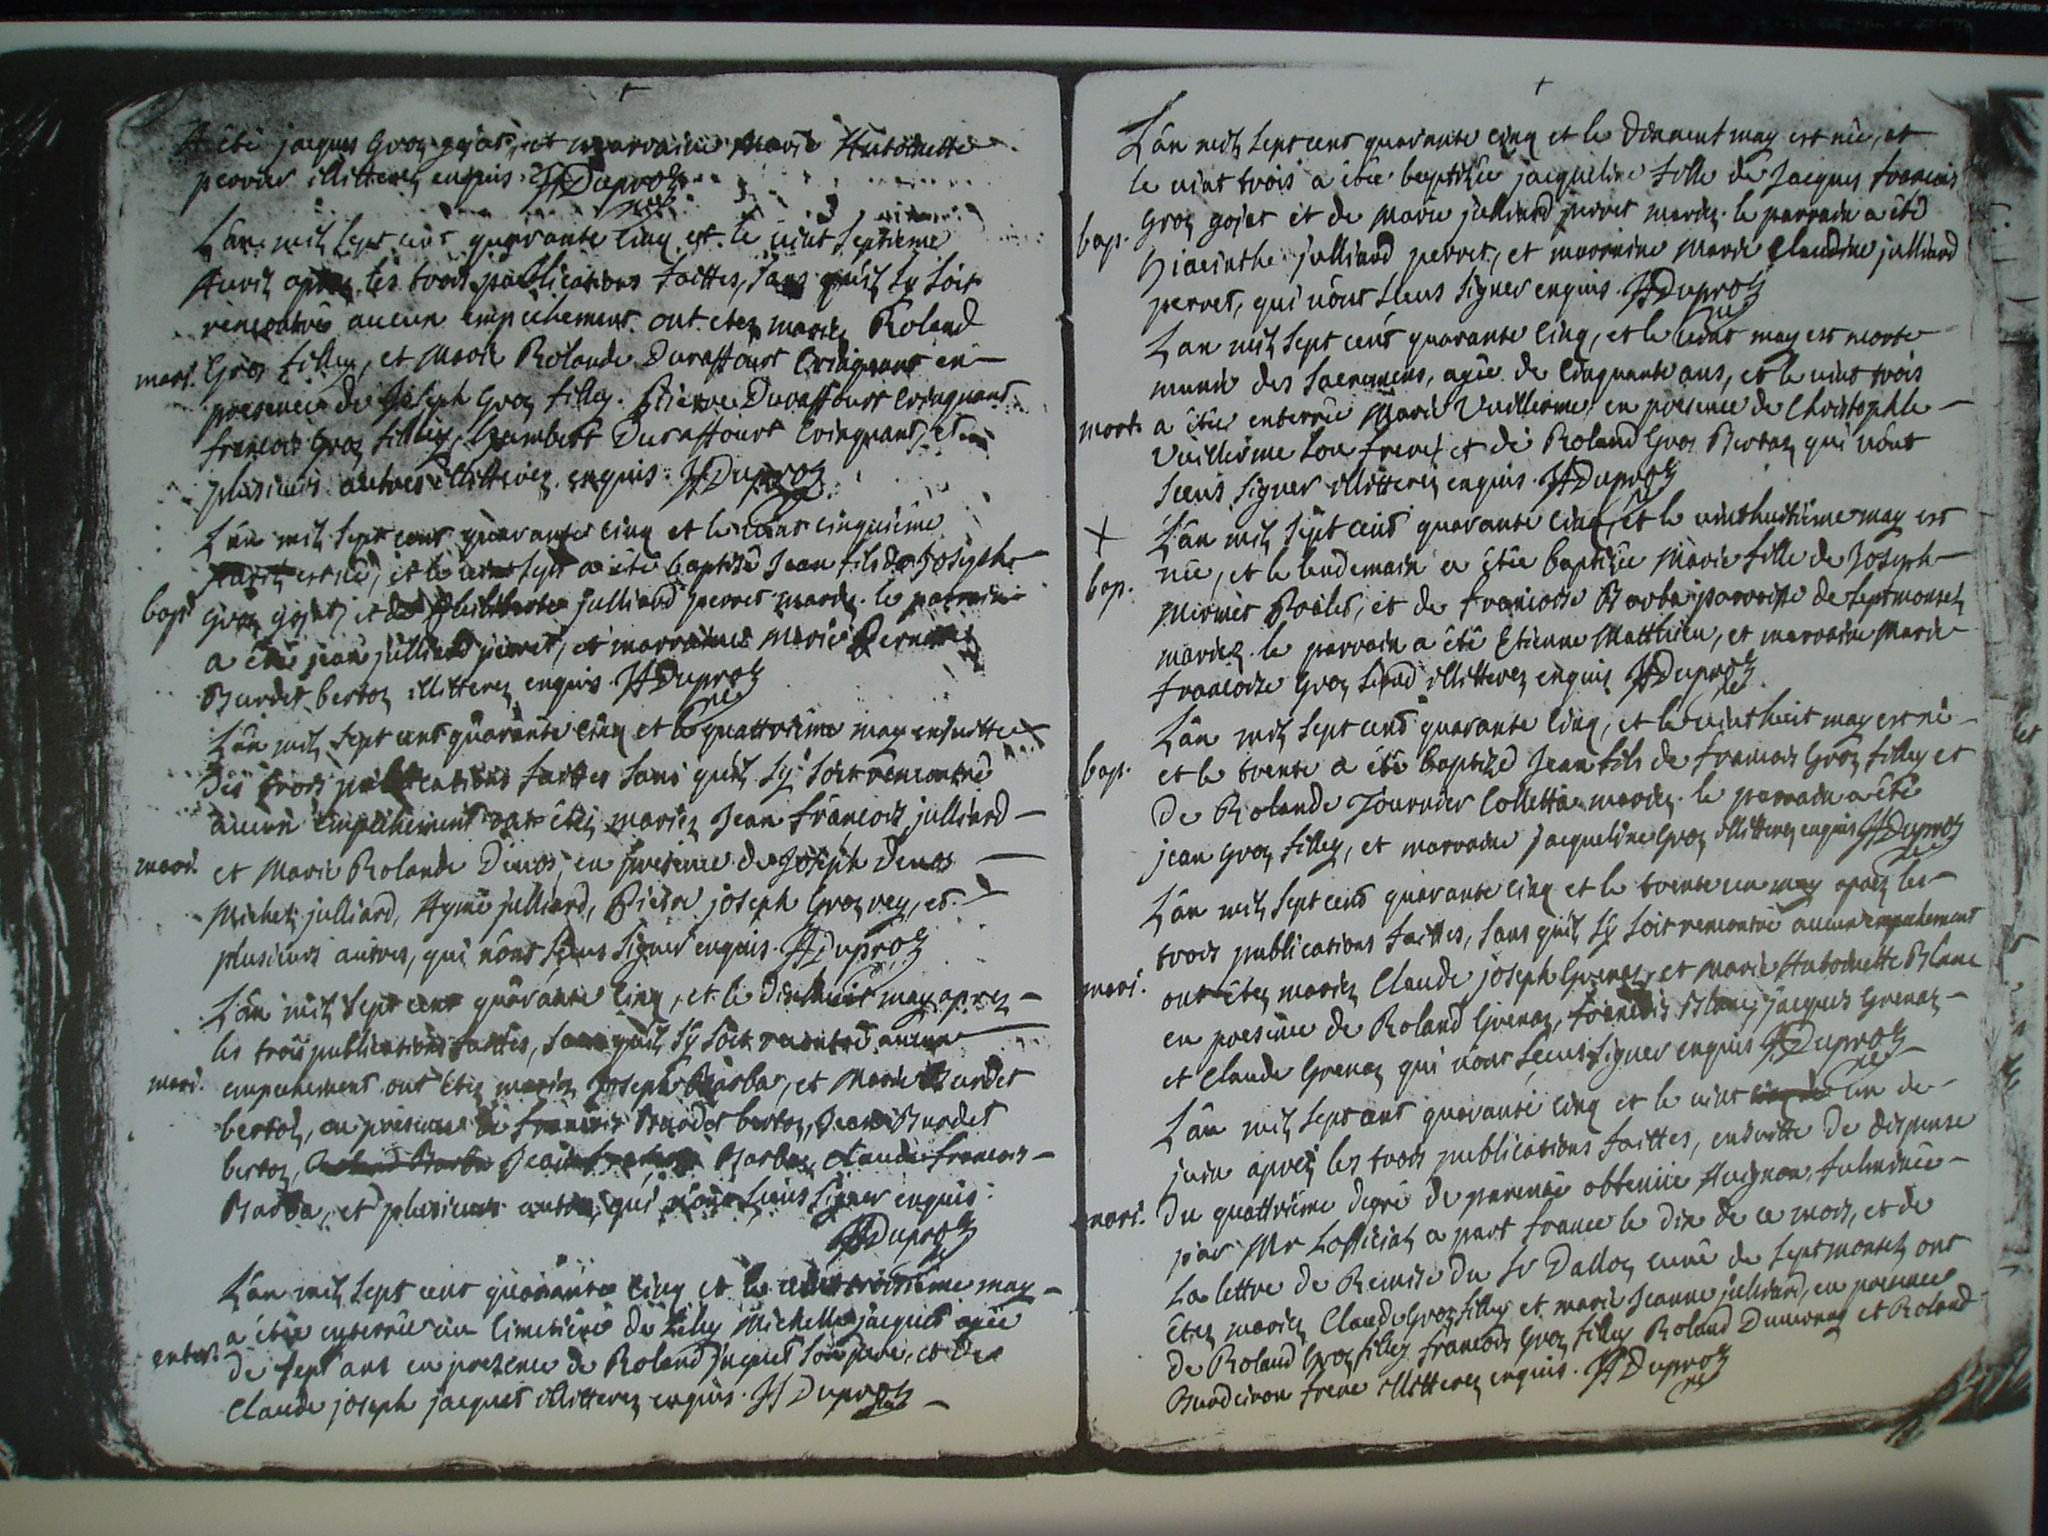 A été jacques Groz gojat, et marraine Marie Antoinette
perrier illitterez enquis. JJDuproz
L'an mil sept cent quarante cinq et le vint septieme
Avril après les trois publications faittes, sans qu'il sy soit
rencontré aucun empechement ont etez mariez Roland
mari. Groz filley, et Marie Rolande Duraffourt Coinquant en
presence de Joseph Groz filley. Pierre Duraffourt Coinquant
francois Groz filley, Humbert Duraffourt Coinquant, et
plusieurs autres illitterez enquis. JJDuproz
L'an mil sept cent quarante cinq et le vint cinquième
Avril est né, et le vint sept a été baptisé Jean fils de Joseph
bapt. Groz gojat et de Philiberte julliard perret mariez. le parrain
a été jean julliard perret, et marraine Marie
Burdet bertoz illitterez enquis. JJDuproz
L'an mil sept cent quarante cinq et le quattrième may ensuitte
des trois publications faittes sans qu'il sy soit rencontré
aucun empechement ont étez mariez Jean françois julliard
mari. et Marie Rolande Denos, en presence de Joseph Denos
Michel julliard, Aymé julliard, Pierre joseph Groz rey, et
plusieurs autres, qui n'ont sceus signer enquis. JJDuproz
L'an mil sept cent quarante cinq, et le dixhuit may aprez
les trois publications faittes, sans qu'il sy soit rencontré aucun
mari. empechement ont étez mariez Joseph Barba, et Marie Burdet
bertoz, en presence de françois Burdet bertoz, Jean Burdet
bertoz, Roland Barba Barba, claude francois
Barba, et plusieurs autres, qui n'ont sceus signer enquis.
JJDuproz
L'an mil sept cent quarante cinq et le vint troisième may
a étée enterrée au cimetière de Michelle jacquet agée
enterr. de sept ans en presence de Roland jacquet son pere, et de
Claude joseph jacquet illitterez enquis. JJDuproz
L'an mil sept cent quarante cinq et le may est née, et
le vint trois a étée baptizée jacqueline fille de Jacques francois
bap. Groz gojat et de Marie julliard perret mariez. le parrain a été
hiacinthe julliard perret, et marraine Marie Claudine julliard
perret, qui n'ont sceus signer enquis. JJDuproz
L'an mil sept cent quarante cinq, et le vint may est morte
munie des sacremens, agée de cinquante ans, et le vint trois
mort. a étée enterrée Marie Vuillerme en presence de Christophle
Vuillerme son frere et de Roland Groz Bertoz qui n'ont
sceus signer illitterez enquis. JJDuproz
L'an mil sept cent quarante cinq, et le vinthuitième may est
bap. née, et le lendemain a étée baptizée Marie fille de Joseph
Mermet et de francoise Barba parroisse de septmoncel
mariez. le parrain a été Etienne Matthieu, et marraine Marie
francoize Groz illitterez enquis JJDuproz
L'an mil sept cent quarante cinq, et le vinthuit may est né
bap. et le trente a été baptizé Jean fils de francois Groz filley et
de Rolande Tournier Colletta mariez. le parrain a été
jean Groz filley, et marraine jacqueline Groz illitterez enquis JJDuproz
L'an mil sept cent quarante cinq et le trente un may aprez les
trois publications faittes, sans qu'il sy soit rencontré aucun empechement
mari. ont étez mariez Claude joseph Grenaz, et Marie Antoinette Blanc
en presence de Roland Grenaz, francois Blanc, jacques Grenaz
et Claude Grenaz qui n'ont sceus signer enquis JJDuproz
L'an mil sept cent quarante cinq et le vint un de
juin aprez les trois publications faittes, ensuitte de dispense
mari. du quattrième degré de parenté obtenüe Avignon, fulminée
par Mr Lofficial a part france le dix de ce mois, et de
La lettre de Remise du Sr Dalloz curé de septmoncel ont
étez mariez Claude Groz filley et marie Jeanne julliard, en presence
de Roland Groz filley francois Groz filley Roland et Roland
frere illitterez enquis. JJDuproz